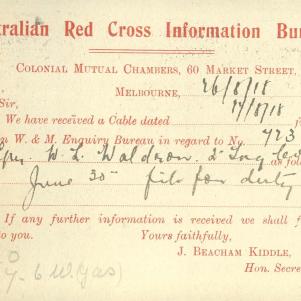 tralian Red Cross Information Bur
COLONIAL MUTUAL CHAMBERS, 60 MARKET STREET,
MELBOURNE, 26/8/18
Sir, 17/8/18
We have received a Cable dated
W. & M. Enquiry Bureau in regard to No. 423
W. L. Waldron. 2 as fol
June 30 fit for duty
If any further information is received we shall f
to you. Yours faithfully,
J. BEACHAM KIDDLE,
Hon. Secre